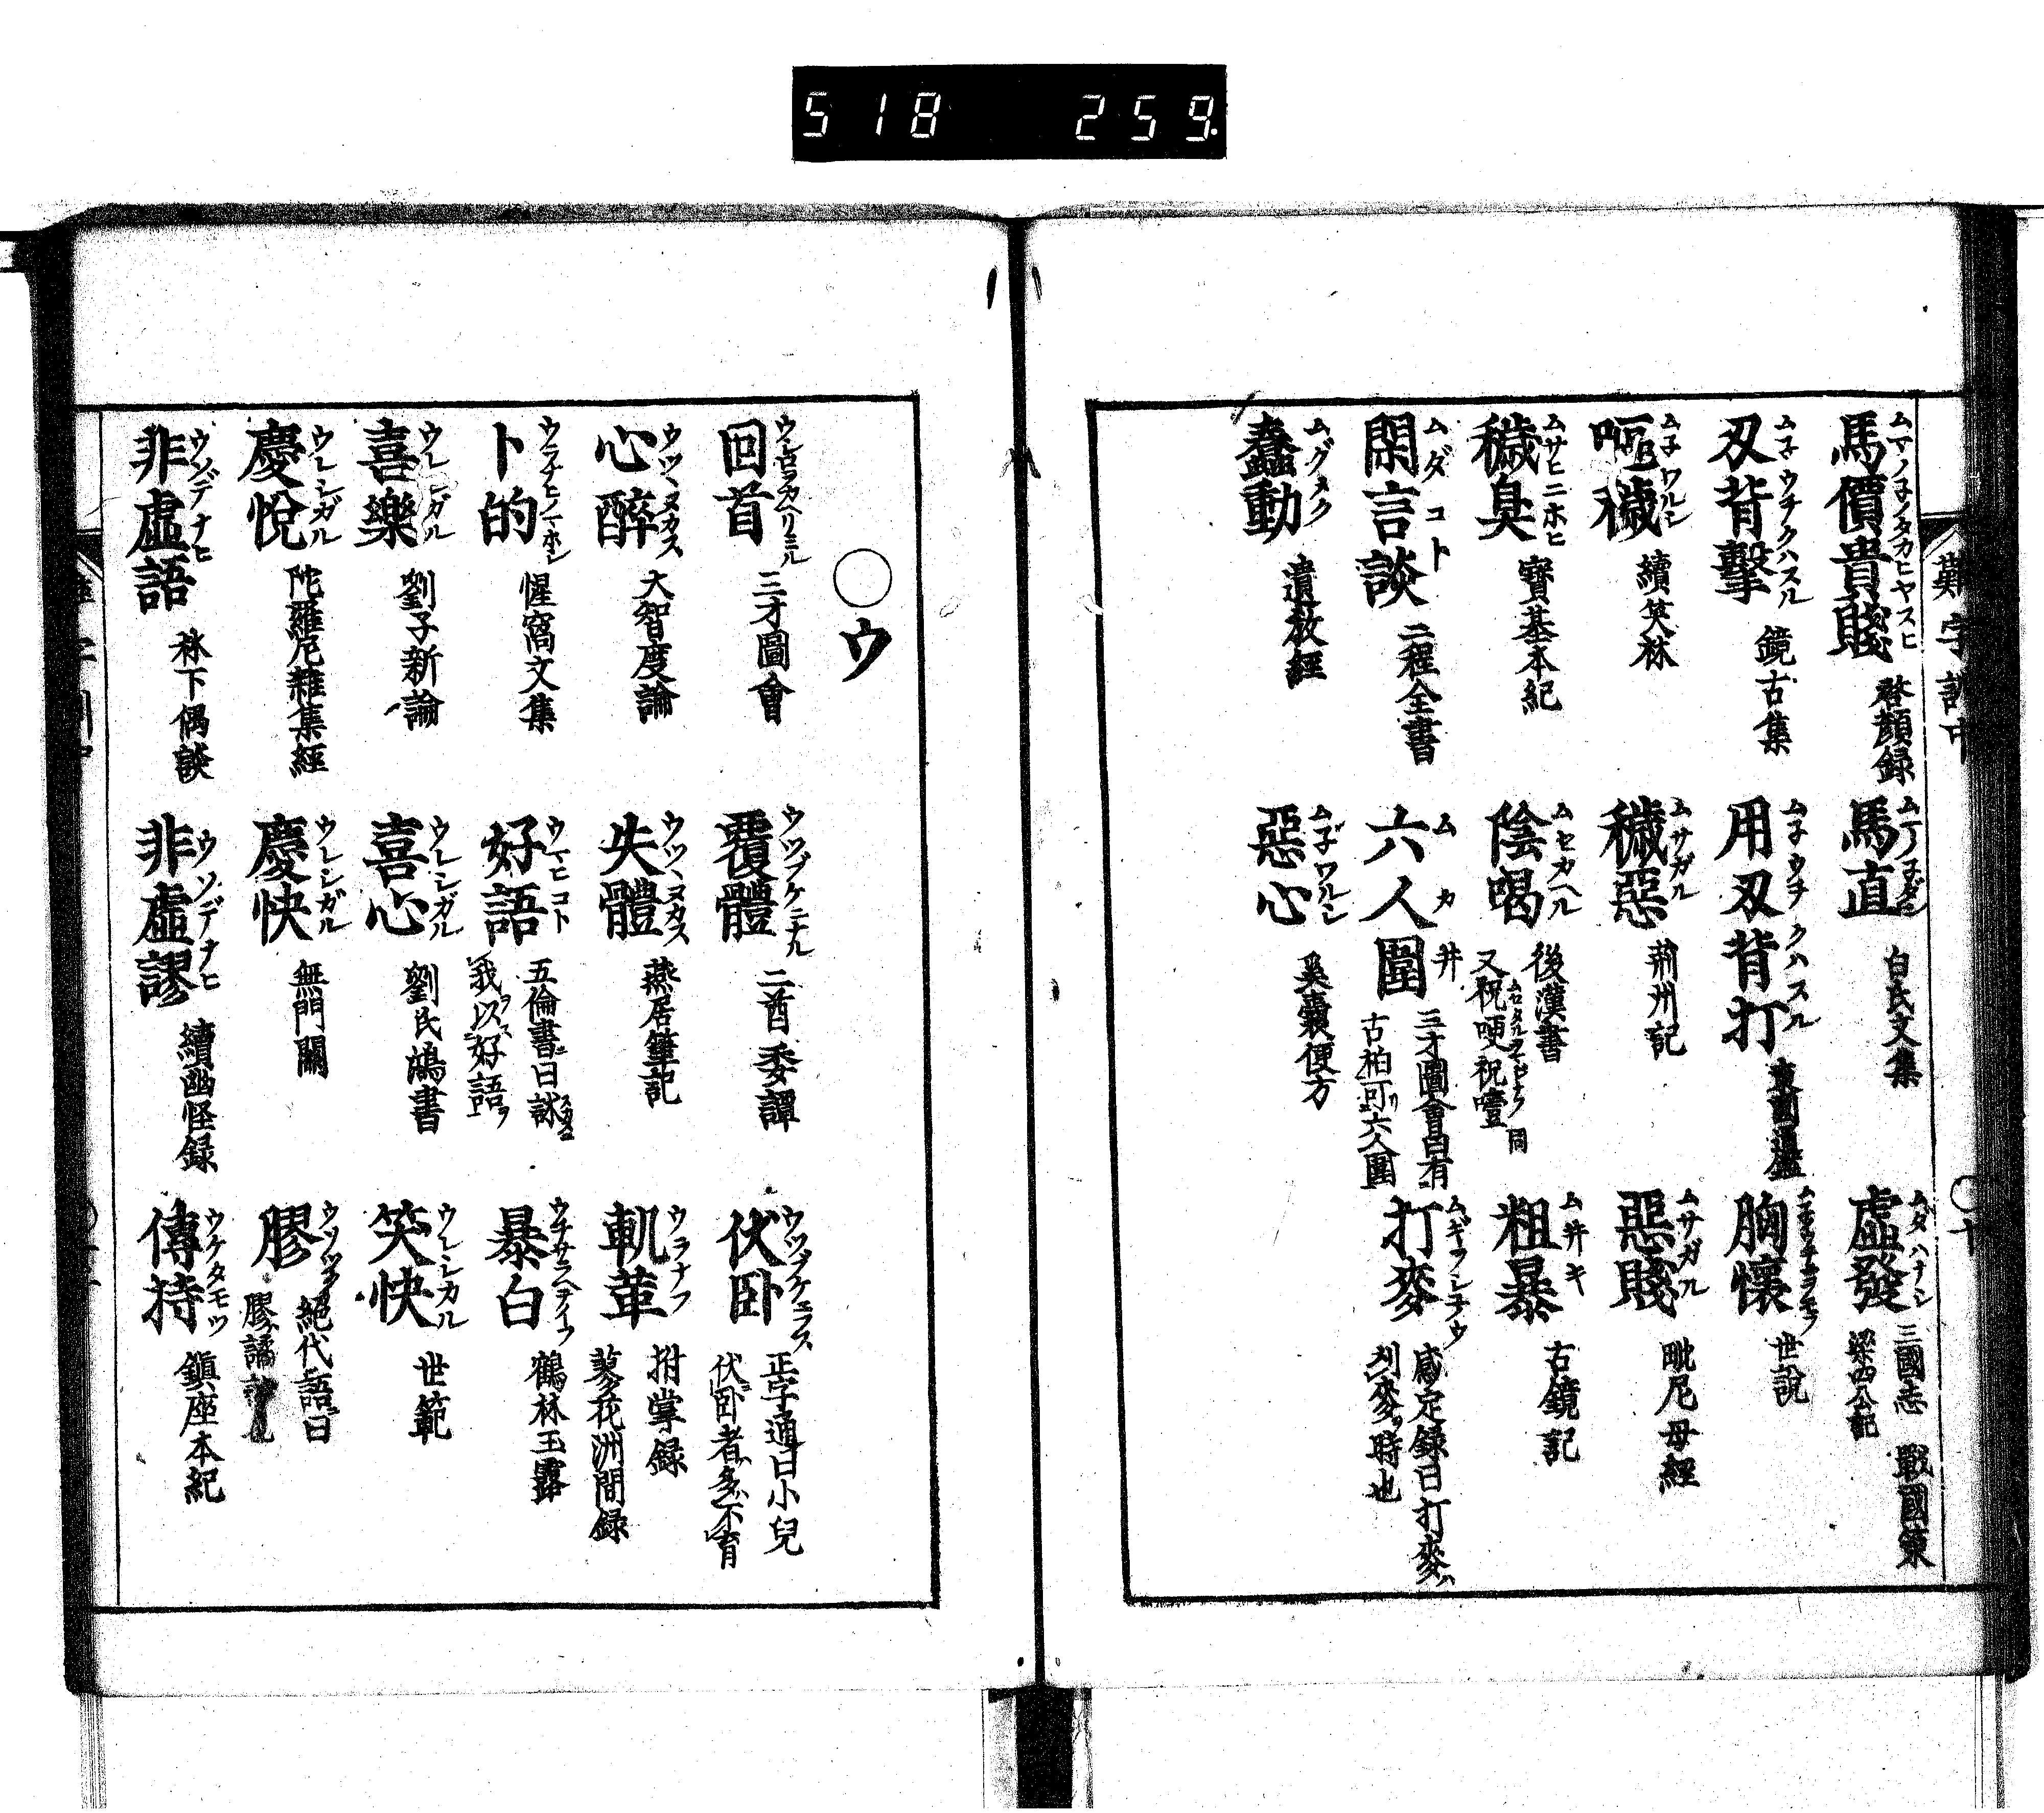 518 259.
難字訓中
馬價貴賤 ムマノ子ノタカヒヤスヒ 啓顔録
馬直 ムマノ子ダン 白氏文集
虛發 ムダハナシ 三國志 戰國策 梁四公記
刄背擊 ム子ウチクハスル 鏡古集
用刄背打 ム子ウチクハスル 東國通鑑
胸懷 世說
嘔穢 ム子ワルシ 續笑林
穢惡 ムサガル 荊州記
惡賤 ムサガル 毗尼母經
穢臭 ムサヒニホヒ 寶基本紀
陰喝 ムセカヘル 後漢書 又祝哽祝噎 同
粗暴 ム井キ 古鏡記
閑言談 ムダコト 二程全書
六人圍 ムカ井 三才圖會曰有古柏可六人圍
打麥 ムギヲシナウ 感定録曰打麥ハ刈麥時也
蠢動 ムグメク 遺教經
惡心 ム子ワルシ 奚囊便方
○ウ
回首 ウシロヲカヘリミル 三才圖會
覆體 ウツブケニナル 二酉委譚
伏卧 ウツブケニフス 正字通曰小兒伏卧者多不育
心醉 ウツヽヌカス 大智度論
失體 ウツヽヌカス 燕居筆記
軌革 ウラナフ 拊掌録 蓼花洲間録
卜的 ウラナヒノマホシ 惺窩文集
好語 ウマヒコト 五倫書曰訹我以好語
暴白 ウチサラヘテイフ 鶴林玉露
喜樂 ウレシガル 劉子新論
喜心 ウレシガル 劉氏鴻書
笑快 ウレシカル 世範
慶悅 ウレシガル 陀羅尼雜集經
慶快 ウレシガル 無門關
膠 絕代語曰膠譎
非虛語 ウソデナヒ 林下偶談
非虛謬 ウソデナヒ 續幽怪録
傳持 ウケタモツ 鎮座本紀